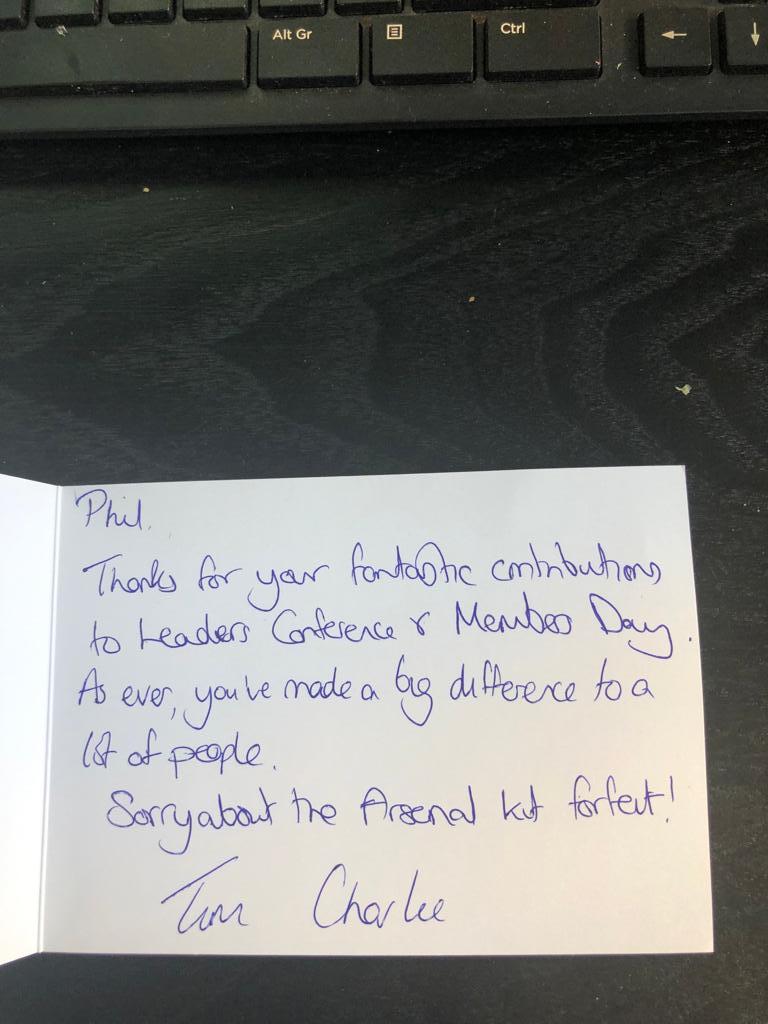 Alt Gr
Ctrl
←
↓
Phil.
Thanks for your fantastic contributions
to Leaders Conference & Members Day.
As ever, you've made a big difference to a
lot of people.
Sorry about the Arsenal kit forfeit!
Tim Charlie